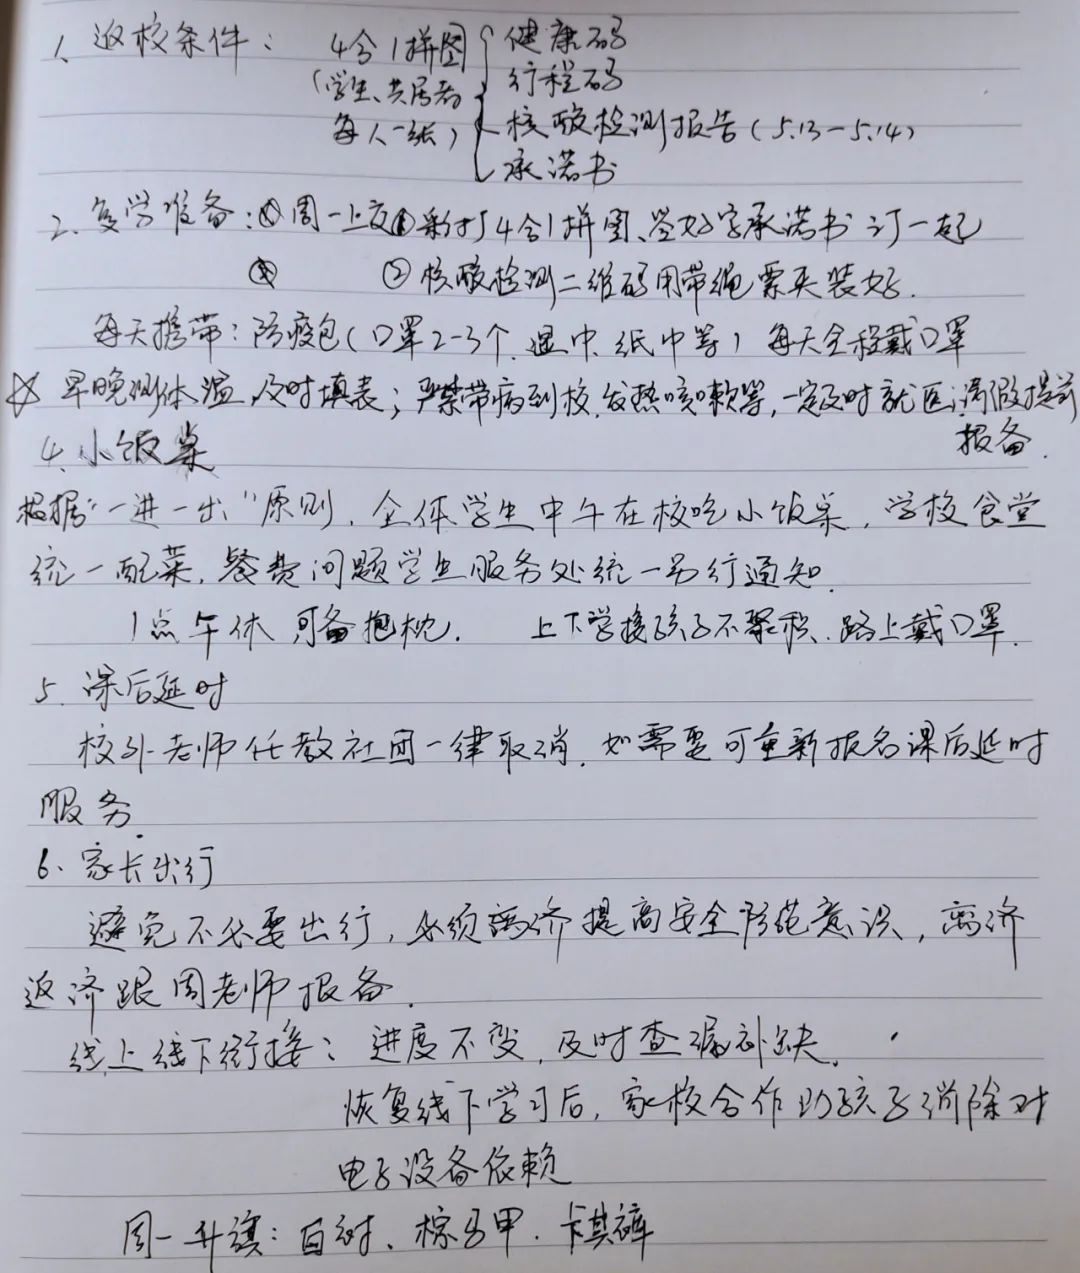 1、返校条件： 4合1拼图 { 健康码
(学生、共居者 行程码
每人一张) 核酸检测报告(5.13-5.14)
承诺书
2、复学准备：周一上交①彩打4合1拼图、签好字承诺书 订一起
② 核酸检测二维码用带绳票夹装好.
每天携带：防疫包(口罩2-3个、湿巾、纸巾等) 每天全程戴口罩
☆ 早晚测体温,及时填表；严禁带病到校,发热咳嗽等,一定及时就医,请假提前
报备.
4、小饭桌
根据“一进一出”原则,全体学生中午在校吃小饭桌,学校食堂
统一配菜,餐费问题学生服务处统一另行通知.
1点午休 可备抱枕. 上下学接孩子不聚积、路上戴口罩.
5、课后延时
校外老师任教社团一律取消,如需要可重新报名课后延时
服务.
6、家长出行
避免不必要出行,必须离济提高安全防范意识,离济
返济跟周老师报备.
线上线下衔接：进度不变,及时查漏补缺.
恢复线下学习后,家校合作助孩子消除对
电子设备依赖
周一升旗：白衬、棕马甲、卡其裤